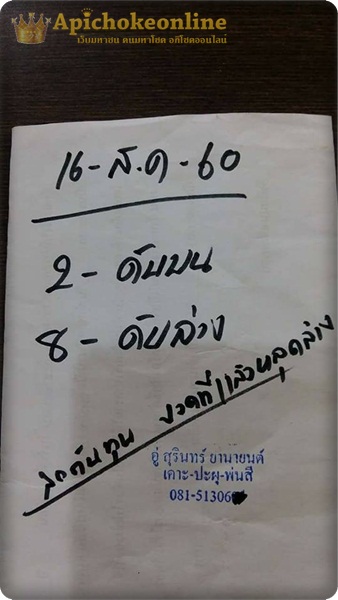 Apichokeonline
เว็บมหาชน คนมหาโชค อภิโชคออนไลน์
16-ส.ค-60
2 - ดับบน
8 - ดับล่าง
งวดที่แล้วหลุดล่าง
อู่ สุรินทร์ ยานยนต์
เคาะ-ปะผุ-พ่นสี
081-5130